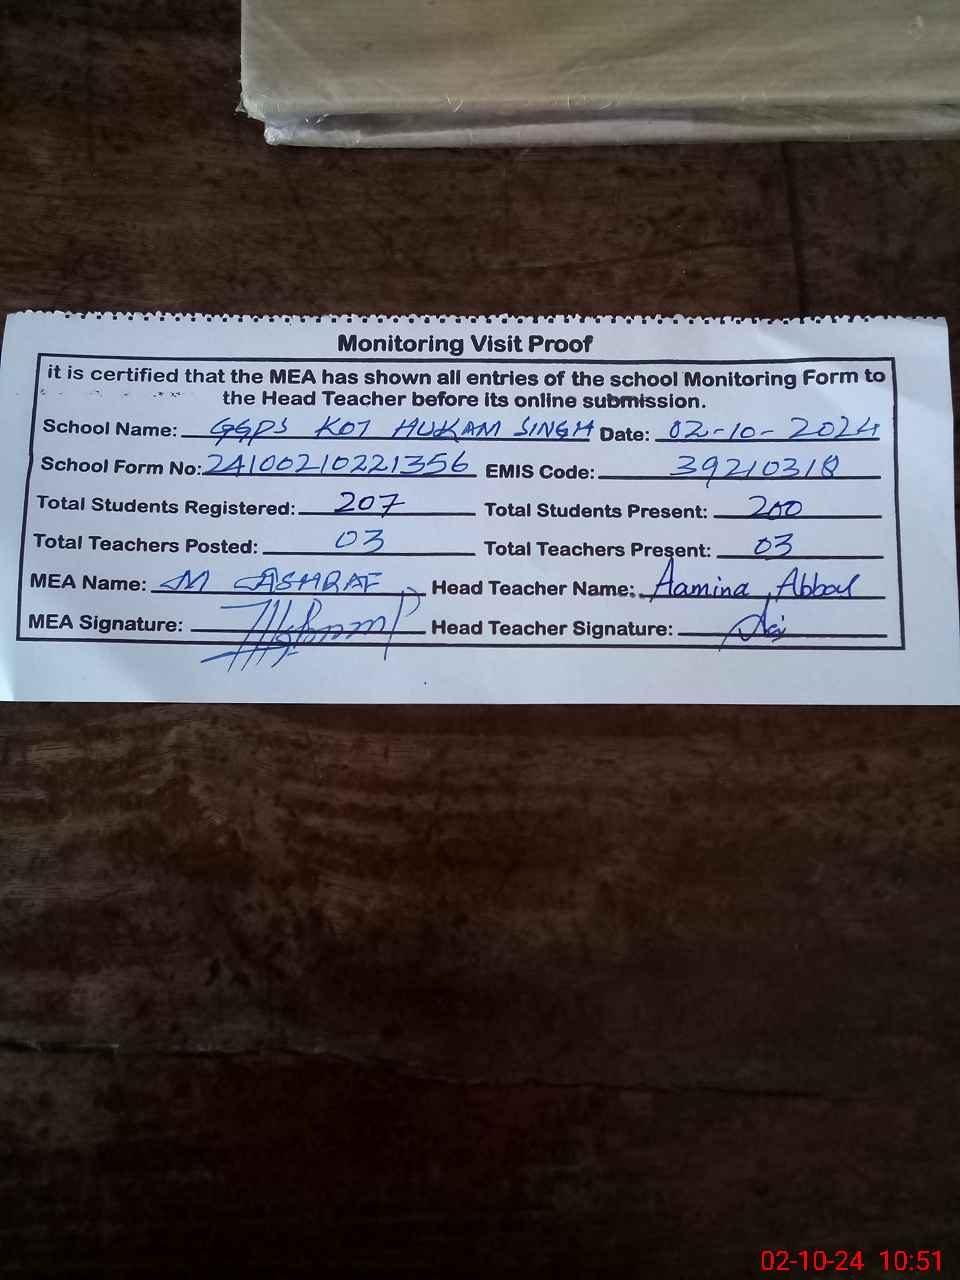 Monitoring Visit Proof
it is certified that the MEA has shown all entries of the school Monitoring Form to
the Head Teacher before its online submission.
School Name: GGPS KOT HUKAM SINGH Date: 02-10-2024
School Form No: 24100210221356 EMIS Code: 39210318
Total Students Registered: 207 Total Students Present: 200
Total Teachers Posted: 03 Total Teachers Present: 03
MEA Name: M ASHRAF Head Teacher Name: Aamina Abbas
MEA Signature: Head Teacher Signature:
02-10-24 10:51